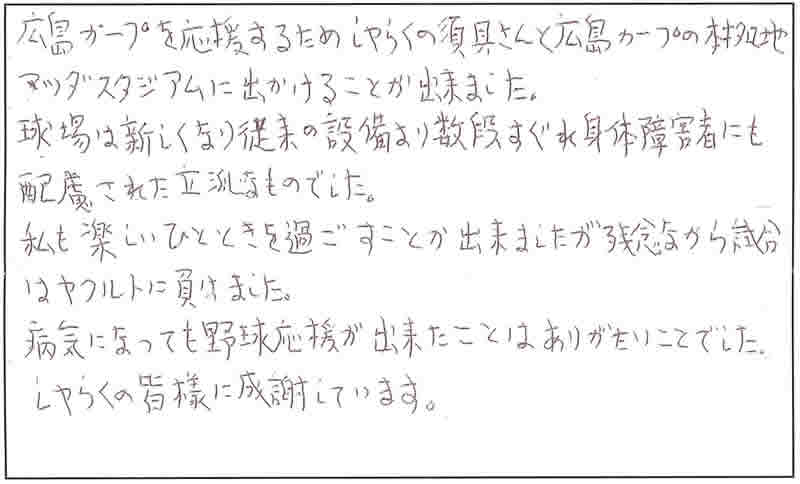 広島カープを応援するためしゃらくの須貝さんと広島カープの本拠地
マツダスタジアムに出かけることが出来ました。
球場は新しくなり従来の設備より数段すぐれ身体障害者にも
配慮された立派なものでした。
私も楽しいひとときを過ごすことが出来ましたが残念ながら試合
はヤクルトに負けました。
病気になっても野球応援が出来たことはありがたいことでした。
しゃらくの皆様に感謝しています。